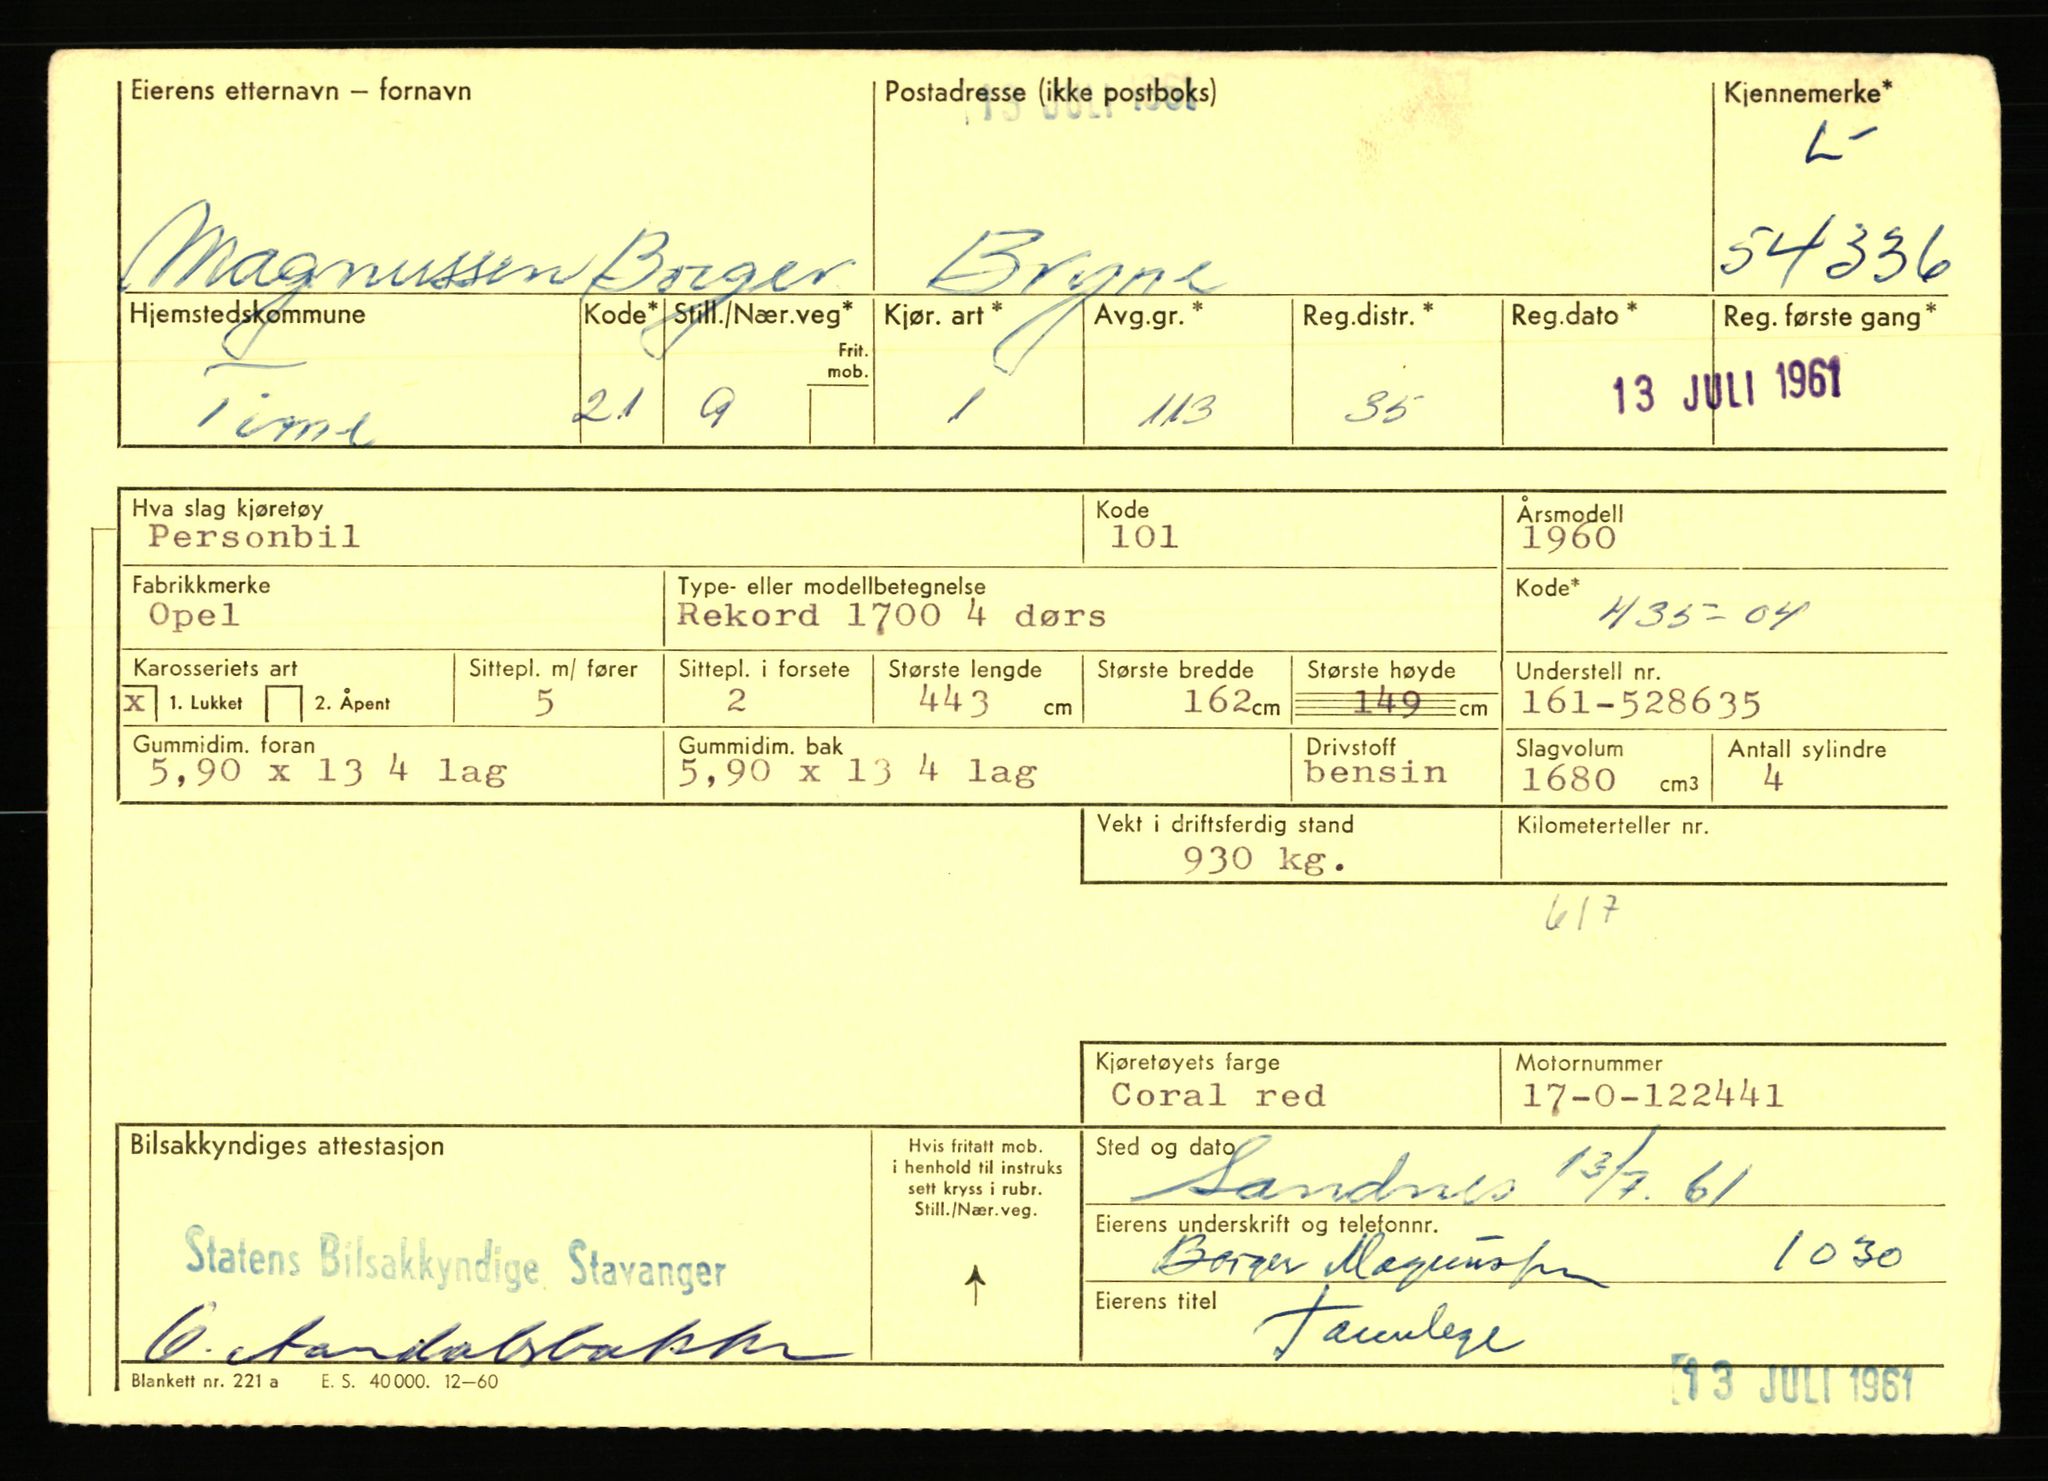 Eierens etternavn – fornavn
Postadresse (ikke postboks)
13 JULI 1961
Kjennemerke*
L-
Magnussen Børger
Bryne
54336
Hjemstedskommune
Kode*
Still./Nær.veg*
Frit. mob.
Kjør. art*
Avg.gr.*
Reg.distr.*
Reg.dato*
Reg. første gang*
Time
21
9
1
113
35
13 JULI 1961
Hva slag kjøretøy
Personbil
Kode
101
Årsmodell
1960
Fabrikkmerke
Opel
Type- eller modellbetegnelse
Rekord 1700 4 dørs
Kode*
435-04
Karosseriets art
x 1. Lukket 2. Åpent
Sittepl. m/ fører
5
Sittepl. i forsete
2
Største lengde
443 cm
Største bredde
162cm
Største høyde
149 cm
Understell nr.
161-528635
Gummidim. foran
5,90 x 13 4 lag
Gummidim. bak
5,90 x 13 4 lag
Drivstoff
bensin
Slagvolum
1680 cm3
Antall sylindre
4
Vekt i driftsferdig stand
930 kg.
Kilometerteller nr.
617
Kjøretøyets farge
Coral red
Motornummer
17-0-122441
Bilsakkyndiges attestasjon
Statens Bilsakkyndige Stavanger
Hvis fritatt mob.
i henhold til instruks
sett kryss i rubr.
Still./Nær.veg.
Sted og dato
Sandnes 13/7. 61
Eierens underskrift og telefonnr.
Børger Magnussen 1030
Eierens titel
Tannlege
Blankett nr. 221 a E. S. 40 000. 12–60
13 JULI 1961